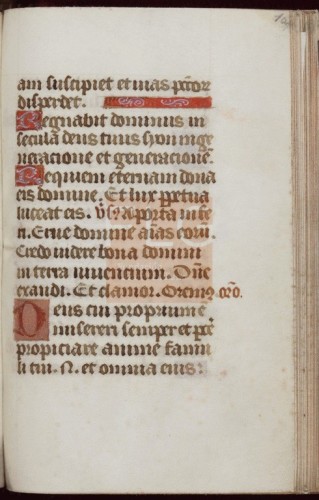 am suscipiet et uias pctor
disperdet.
Regnabit dominus in
secula deus tuus syon in ge
neracione et generacione.
Requiem eternam dona
eis domine. Et lux perpetua
luceat eis. Vs. A porta infe
ri. Erue domine aias eoru.
Credo uidere bona domini
in terra uiuentium. Dne
exaudi. Et clamor. Oremus. oro.
Deus cui proprium e
misereri semper et pce
propiciare anime famu
li tui. N. et omnia eius